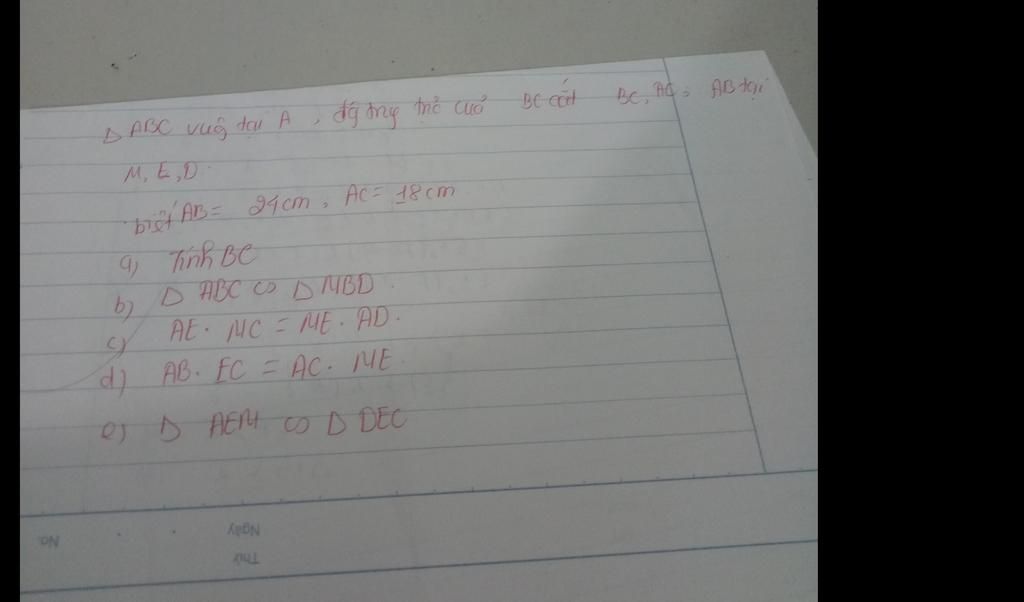 Δ ABC vuô tại A, đg trng trẻ cuả BC cắt BC, AC, AB tại
M, E, D.
biết AB = 24cm, AC = 18cm
a) Tính BC
b) Δ ABC ∽ Δ MBD.
c) AE. MC = ME. AD.
d) AB. EC = AC. ME.
e) Δ AEM ∽ Δ DEC
Ngày
No.
Thứ